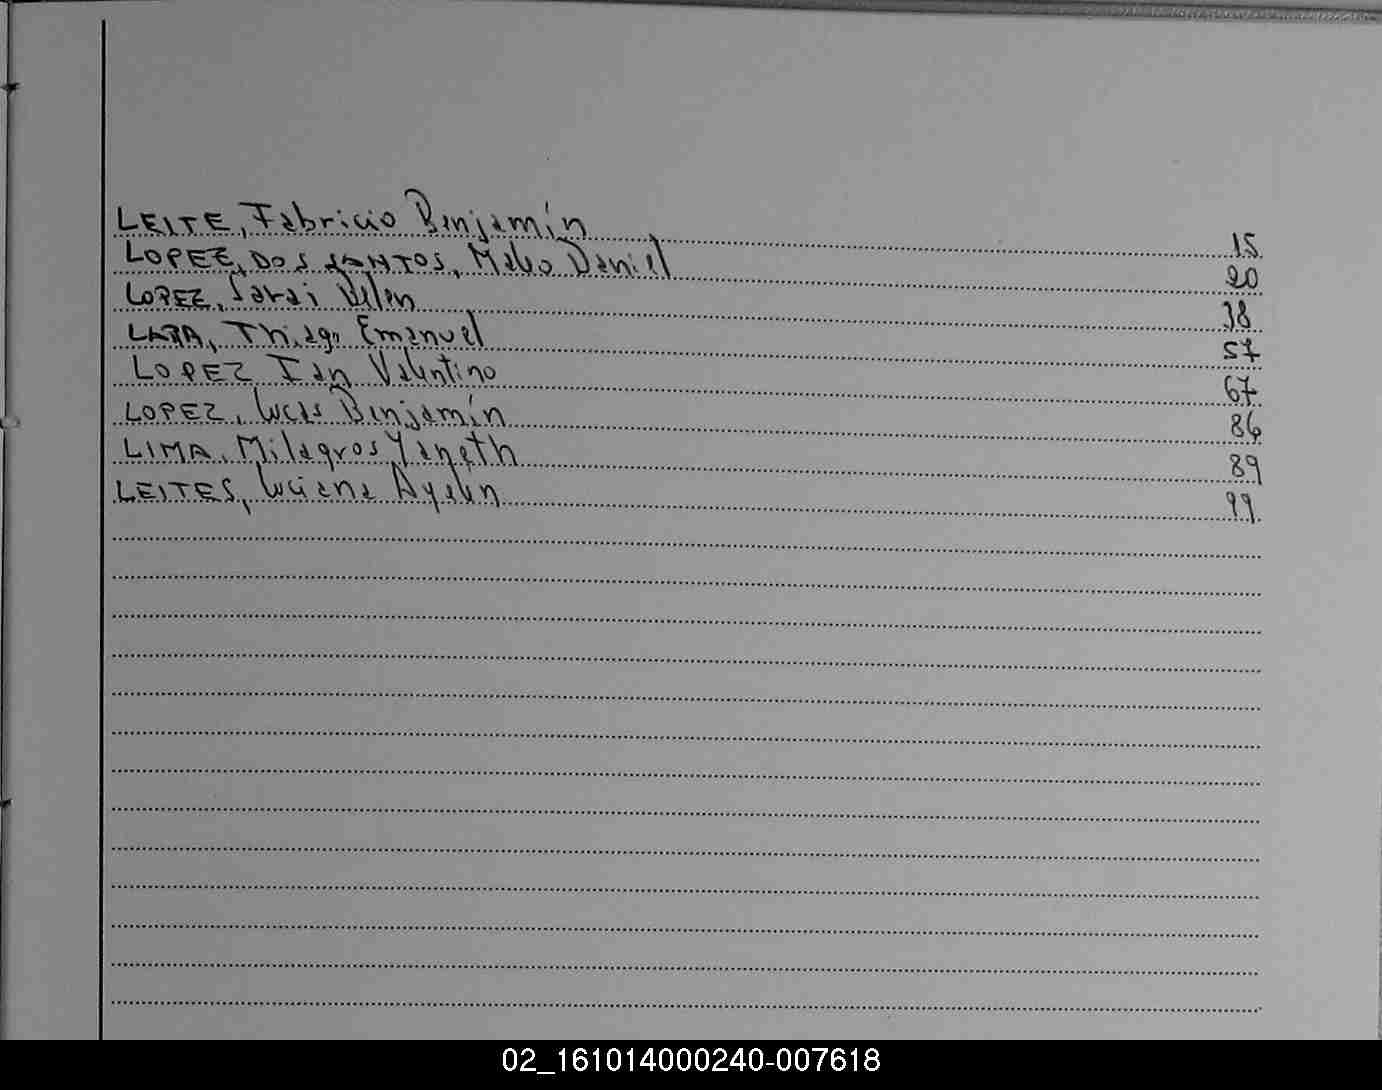 LEITE, Fabricio Benjamín 15
LOPEZ, DOS SANTOS, Daniel 20
LOPEZ, Sarai Belen 38
LARA, Thiago Emanuel 57
LOPEZ Ian Valentino 67
LOPEZ, Lucas Benjamín 86
LIMA, Milagros Yaneth 89
LEITES, Luciana Ayelen 99
02_161014000240-007618